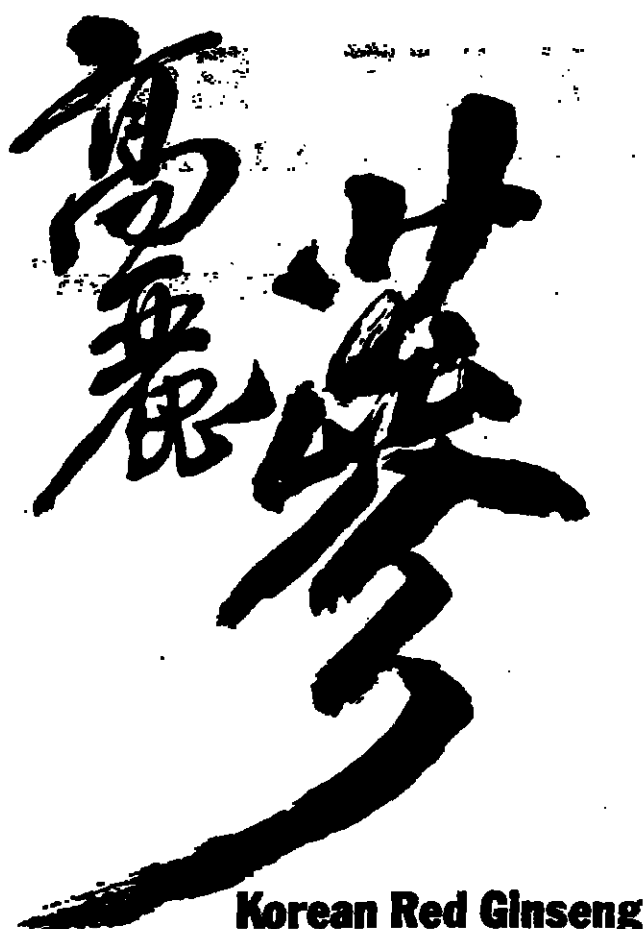 高麗蔘
Korean Red Ginseng